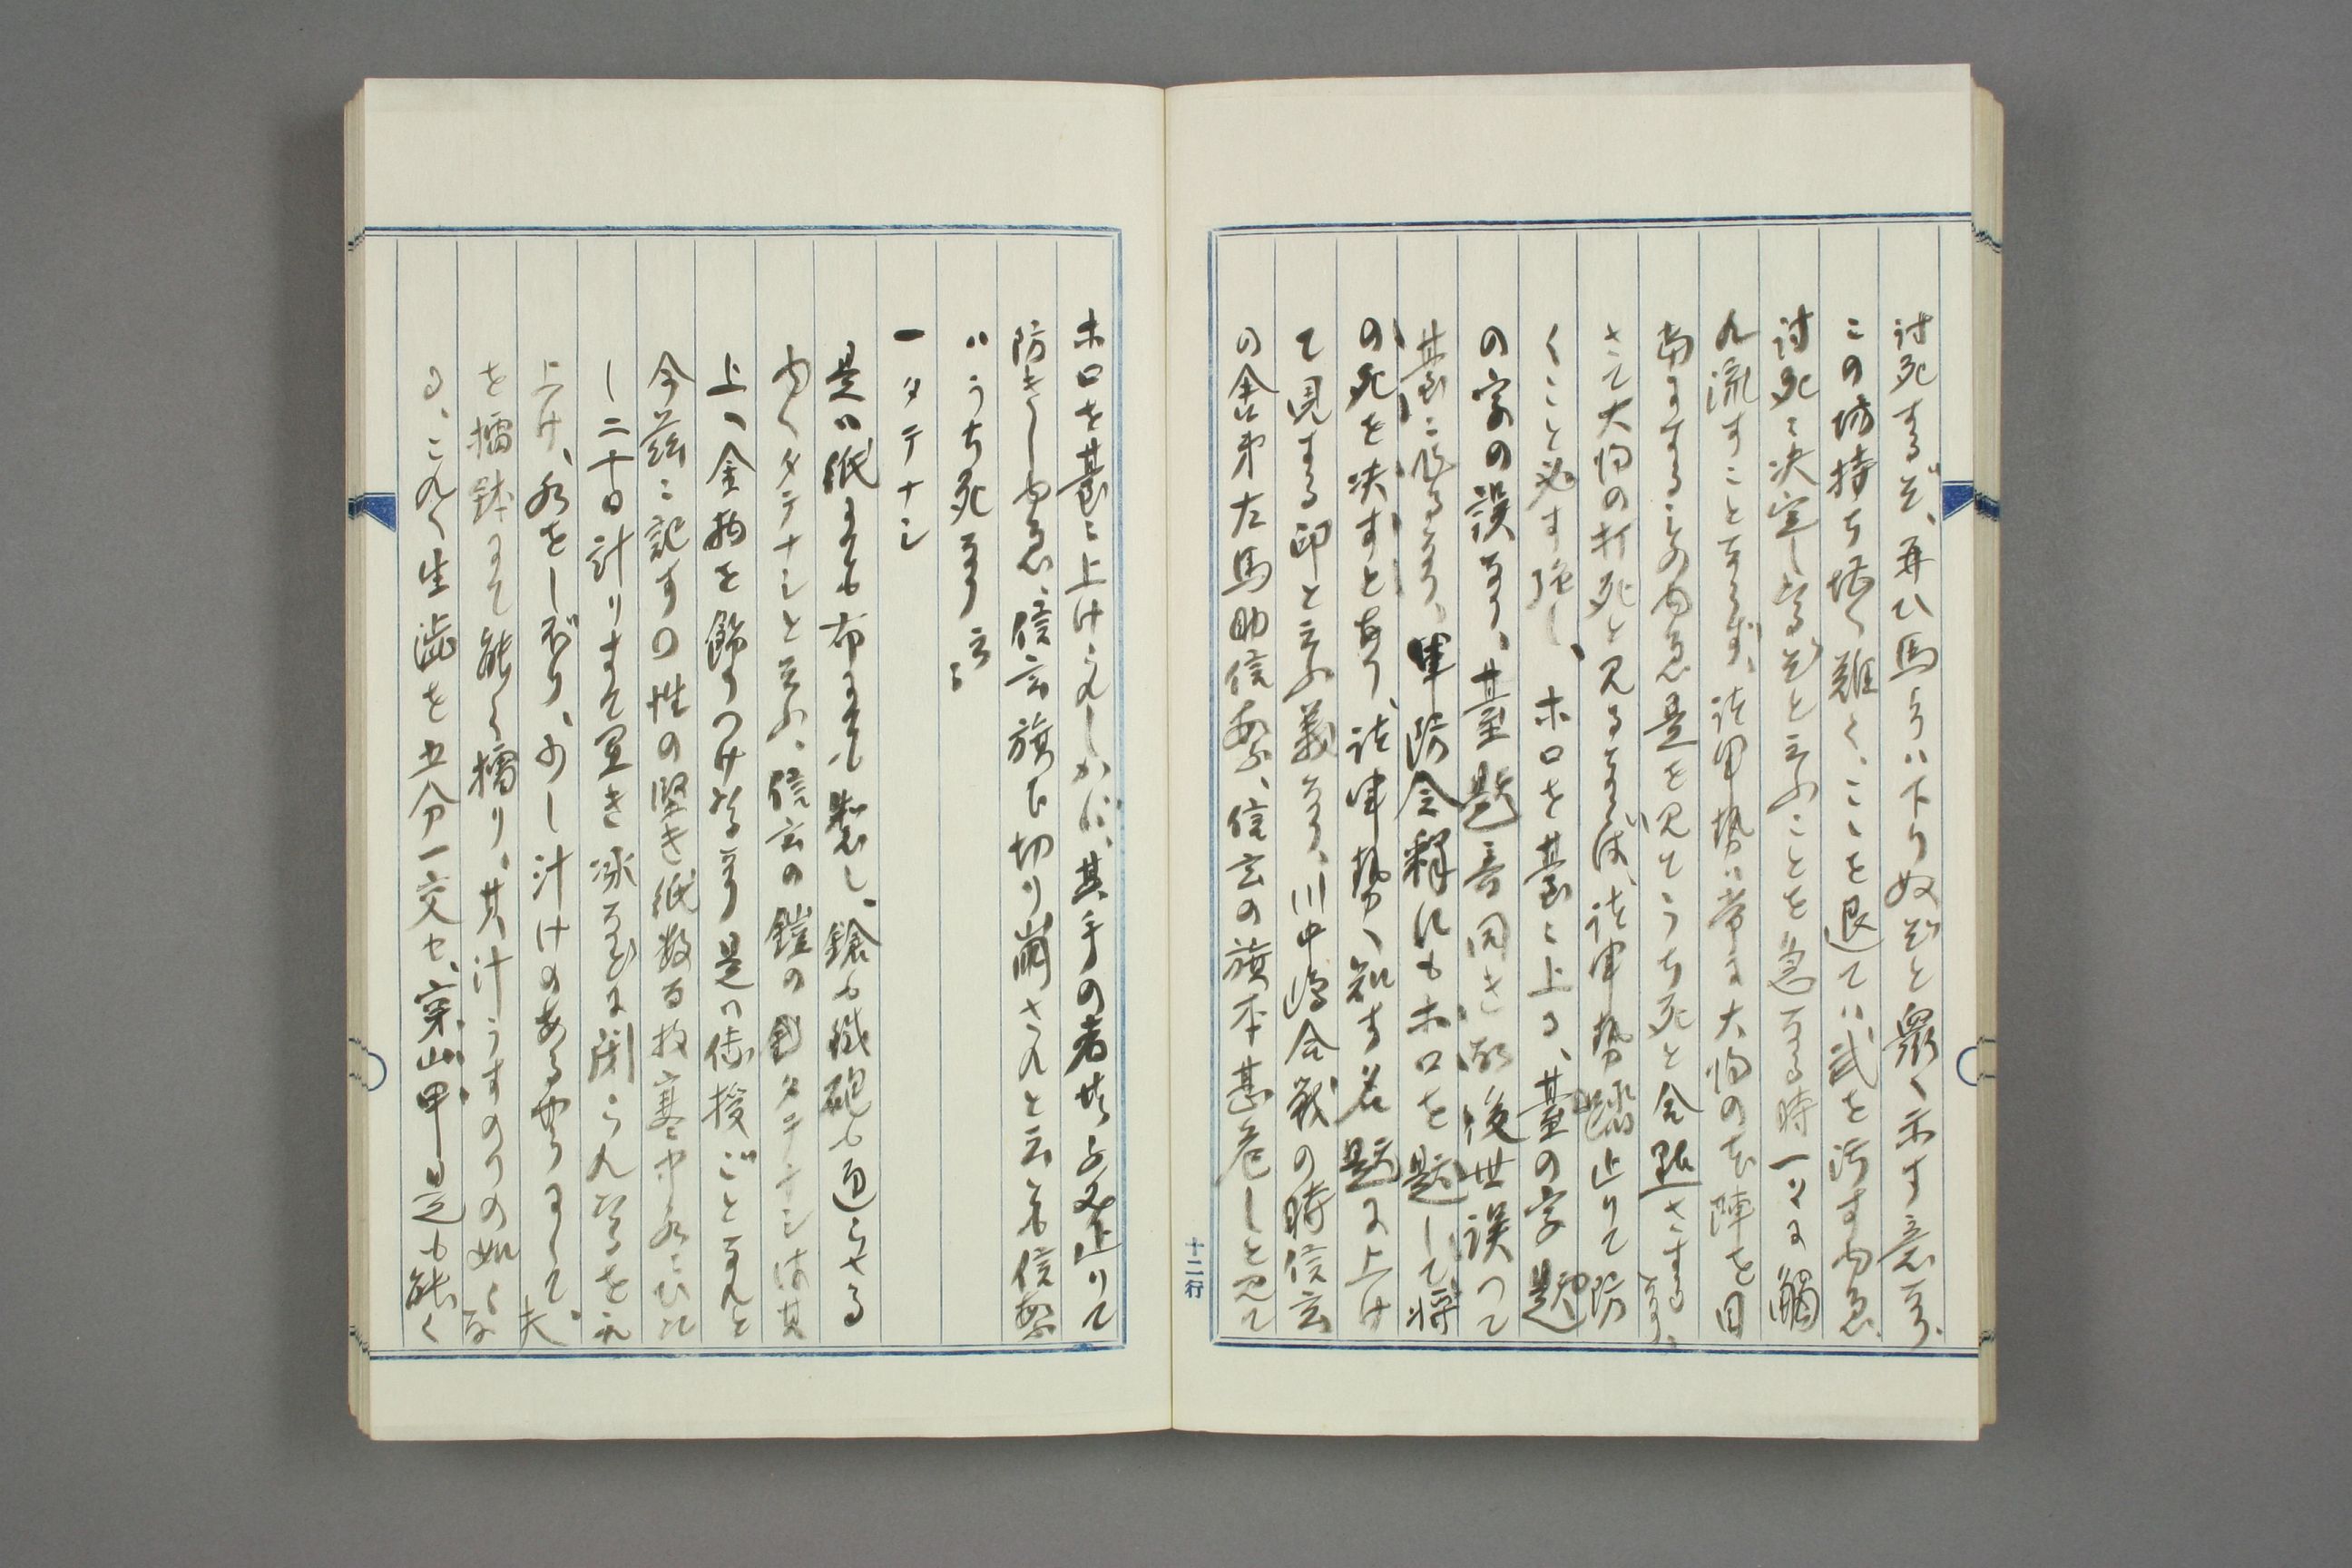 討死するぞ、再ひ馬よりハ下りぬぞと衆く示す意なり、
この場持ち堪へ難く、こゝを退てハ武を汚す由急
討死に決定しなるぞと云ふことを急なる時一々に觸
れ流すことならず、諸軍勢ハ常に大将のを陣を目
当にすることの由急是を見てうち死と合點さするなり、
さて大将の打死と見るならば、諸軍勢踏止りて防
くこと必す強し、ホロを臺に上る、臺の字題
の字の誤なり、臺題音同き故後世誤つて
臺に作るなり、軍防令釋にもホロを題して将
の死を决すとあり、諸軍勢へ知す為題に上け
て見する印と云ふ義なり、川中嶋合戦の時信玄
の舎弟左馬助信繁、信玄の旗本甚危しと見て
十二行
ホロを臺に上けられしかバ、其手の者共よく止りて
防きし由急、信玄旗下切り崩されと云 信繁
ハうち死なり云〻
一タテナシ
是ハ紙にても布にても製し、鎗も鐵砲も通らさる
由へタテナシと云ふ、信玄の鎧の タテナシは其
上へ金物を飾りつけなるなり是ハ傳授ごとなれと
今茲に記す〇性の堅き紙数百枚寒中水にひた
し二十日計りすて置き氷なとに閉られなるを取
上け、水をしぼり、少し汁けのあるやうにして、夫
を擂鉢にて能く擂り、其汁うすのりの如くな
る、これへ生澁を五分一交セ、穿山甲 是も能く